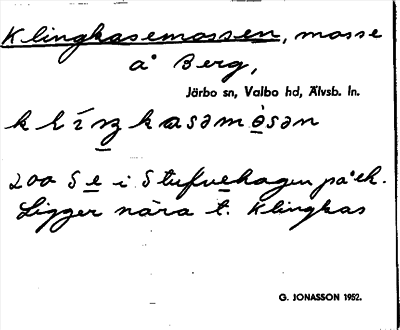 Klingkasemossen, mosse
å Berg,
Järbo sn, Valbo hd, Älvsb. ln.
klíŋkasəmòsən
200 S e i Stufvehagen på ek.
Ligger nära t. Klingkas
G. JONASSON 1952.